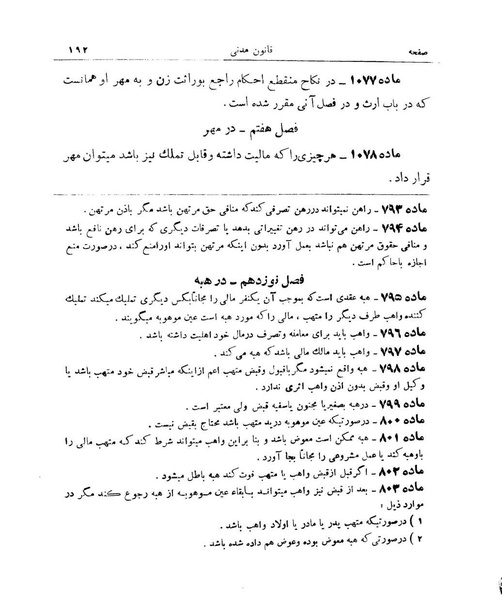 صفحه قانون مدنی ۱۹۲
ماده ۱۰۷۷ ـ در نکاح منقطع احکام راجع بوراثت زن و به مهر او همانست
که در باب ارث و در فصل آتی مقرر شده است .
فصل هفتم ـ در مهر
ماده ۱۰۷۸ ـ هرچیزی را که مالیت داشته و قابل تملك نیز باشد میتوان مهر
قرار داد .
ماده ۷۹۳ ـ راهن نمیتواند در رهن تصرفی کند که منافی حق مرتهن باشد مگر باذن مرتهن .
ماده ۷۹۴ ـ راهن می‌تواند در رهن تغییراتی بدهد یا تصرفات دیگری که برای رهن نافع باشد
و منافی حقوق مرتهن هم نباشد بعمل آورد بدون اینکه مرتهن بتواند اورا منع کند ، درصورت منع
اجازه با حاکم است .
فصل نوزدهم ـ در هبه
ماده ۷۹۵ ـ هبه عقدی است که بموجب آن یکنفر مالی را مجاناً بکس دیگری تملیك میکند تملیك
کننده واهب طرف دیگر را متهب ، مالی را که مورد هبه است عین موهوبه میگویند
ماده ۷۹۶ ـ واهب باید برای معامله و تصرف درمال خود اهلیت داشته باشد .
ماده ۷۹۷ ـ واهب باید مالك مالی باشد که هبه می کند .
ماده ۷۹۸ ـ هبه واقع نمیشود مگر باقبول و قبض متهب اعم از اینکه مباشر قبض خود متهب باشد یا
وکیل او و قبض بدون اذن واهب اثری ندارد .
ماده ۷۹۹ ـ درهبه بصغیر یا مجنون یاسفیه قبض ولی معتبر است .
ماده ۸۰۰ ـ درصورتیکه عین موهوبه درید متهب باشد محتاج بقبض نیست .
ماده ۸۰۱ ـ هبه ممکن است معوض باشد و بنا براین واهب میتواند شرط کند که متهب مالی را
باوهبه کند یا عمل مشروعی را مجاناً بجا آورد .
ماده ۸۰۲ ـ اگر قبل از قبض واهب یا متهب فوت کند هبه باطل میشود .
ماده ۸۰۳ ـ بعد از قبض نیز واهب میتواند بابقاء عین موهوبه از هبه رجوع کند مگر در
موارد ذیل :
۱ ) درصورتیکه متهب پدر یا مادر یا اولاد واهب باشد .
۲ ) درصورتی که هبه معوض بوده وعوض هم داده شده باشد .